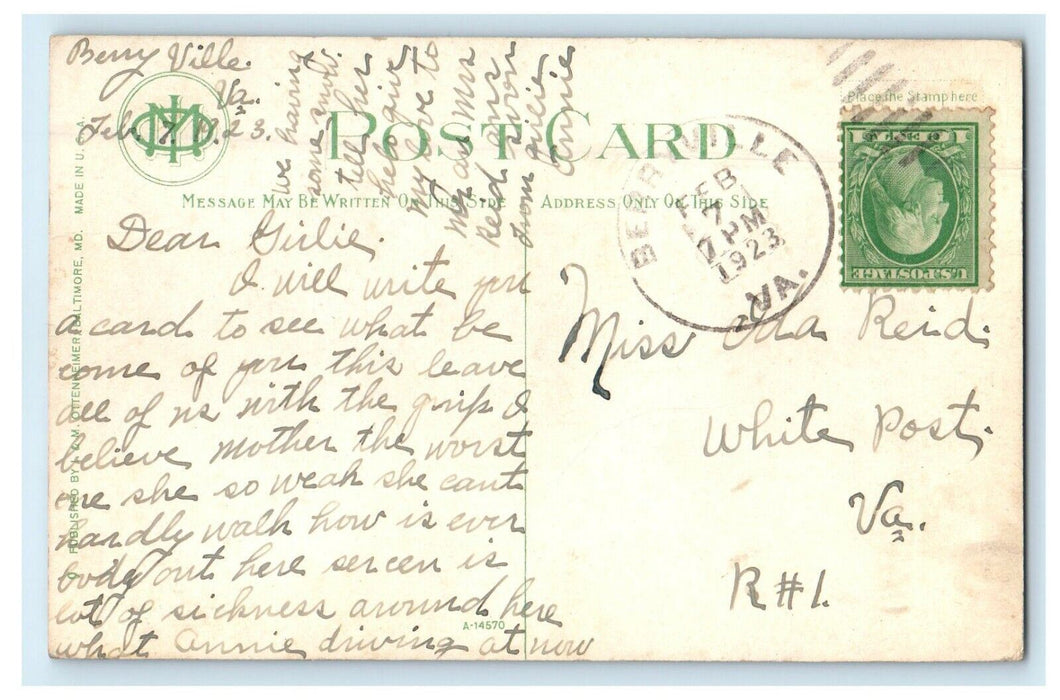 Berry Ville.
Va.
Feb, 7, 1923.
POST CARD
Place the Stamp here
MESSAGE MAY BE WRITTEN ON THIS SIDE
ADDRESS ONLY ON THIS SIDE
BERRYVILLE
FEB
7
7 PM
1923
VA.
U.S. POSTAGE
Dear Girlie.
I will write you
a card to see what be
come of you this leave
all of us with the grip I
believe mother the worst
one she so weak she cant
hardly walk how is ever
body out here
lot of sickness around here
what Annie driving at now
we having
some
tell her
my love to
from
Annie
Miss Ida Reid.
White Post.
Va.
R#1.
PUBLISHED BY I. & M. OTTENHEIMER, BALTIMORE, MD. MADE IN U. S. A.
A-14570